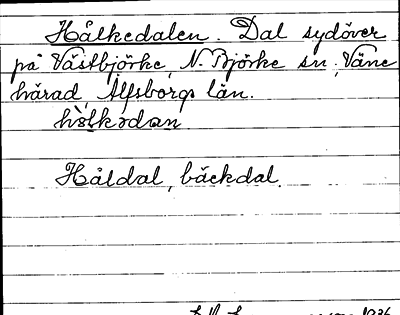 Hålkedalen. Dal sydöver
på Västbjörke, N. Björke sn, Väne
härad, Älfsborgs län.
hòlkədan
Håldal, bäckdal.
1936